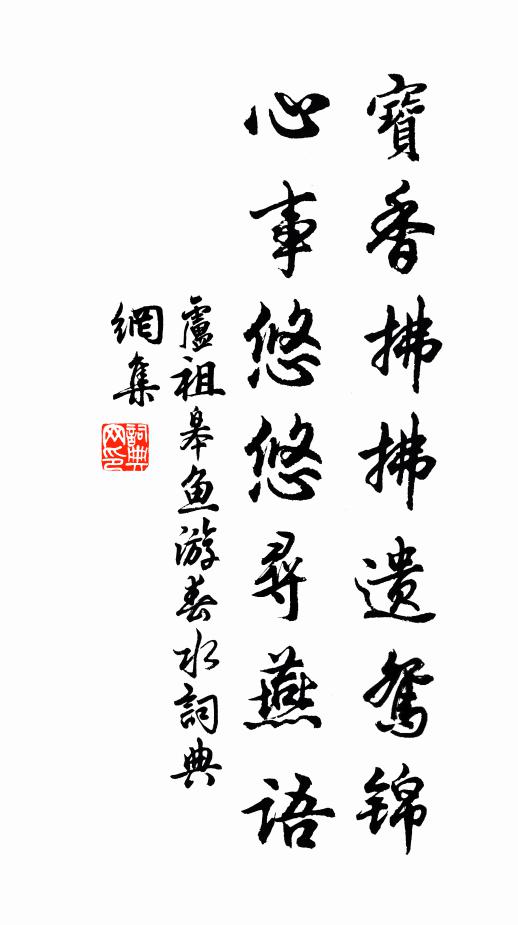 寶香拂拂遺鴛锦
心事悠悠尋燕语
盧祖皋魚游春水詞典
網集
詞典網印